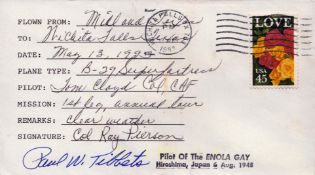 FLOWN FROM: Midland
TO: Wichita Falls Texas
DATE: May 3, 1989
PLANE TYPE: B-29 Superfortress
PILOT: Tom Cloyd Col, CAF
MISSION: 1st leg, annual tour
REMARKS: clear weather
SIGNATURE: Col Ray Pierson
Paul W. Tibbets
LOVE
USA
45
Pilot Of The ENOLA GAY
Hiroshima, Japan 6 Aug. 1945